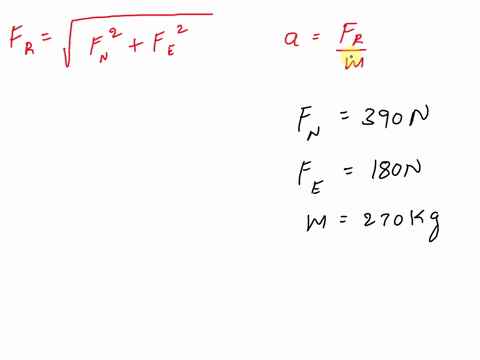 F_R = √(F_N² + F_E²)
a = F_R / m
F_N = 390N
F_E = 180N
m = 270Kg